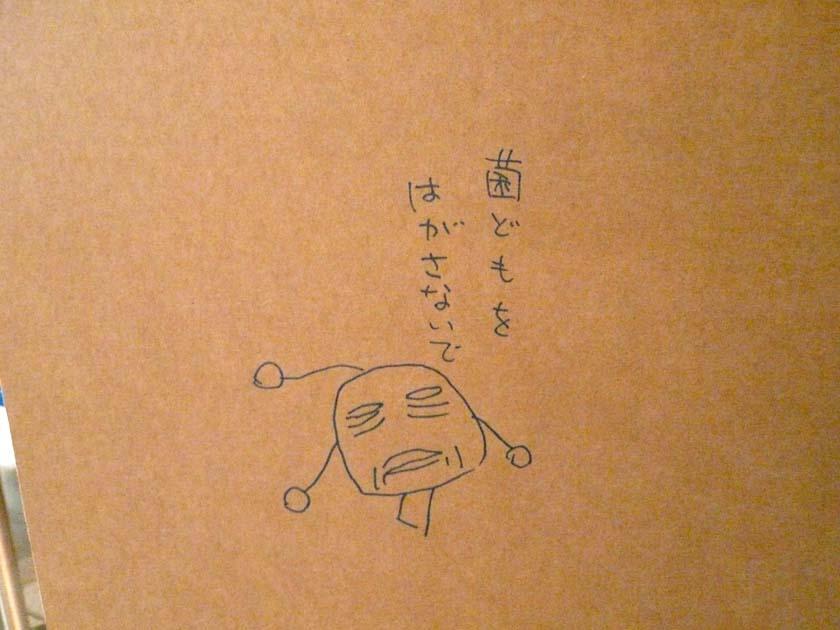 菌どもを
はがさないで